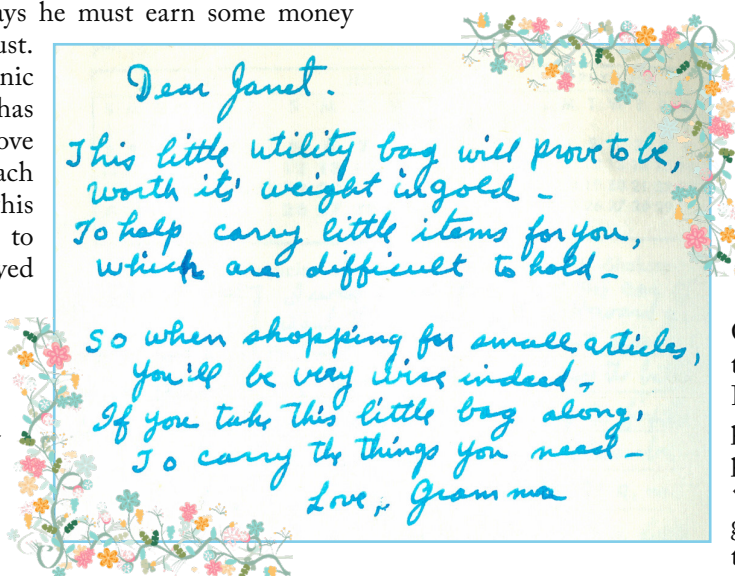 ays he must earn some money
ust.
nic
has
ove
ach
his
to
yed
Dear Janet.
This little utility bag will prove to be,
worth its' weight in gold –
To help carry little items for you,
which are difficult to hold –
So when shopping for small articles,
you'll be very wise indeed –
If you take this little bag along,
To carry the things you need –
Love, Gramma